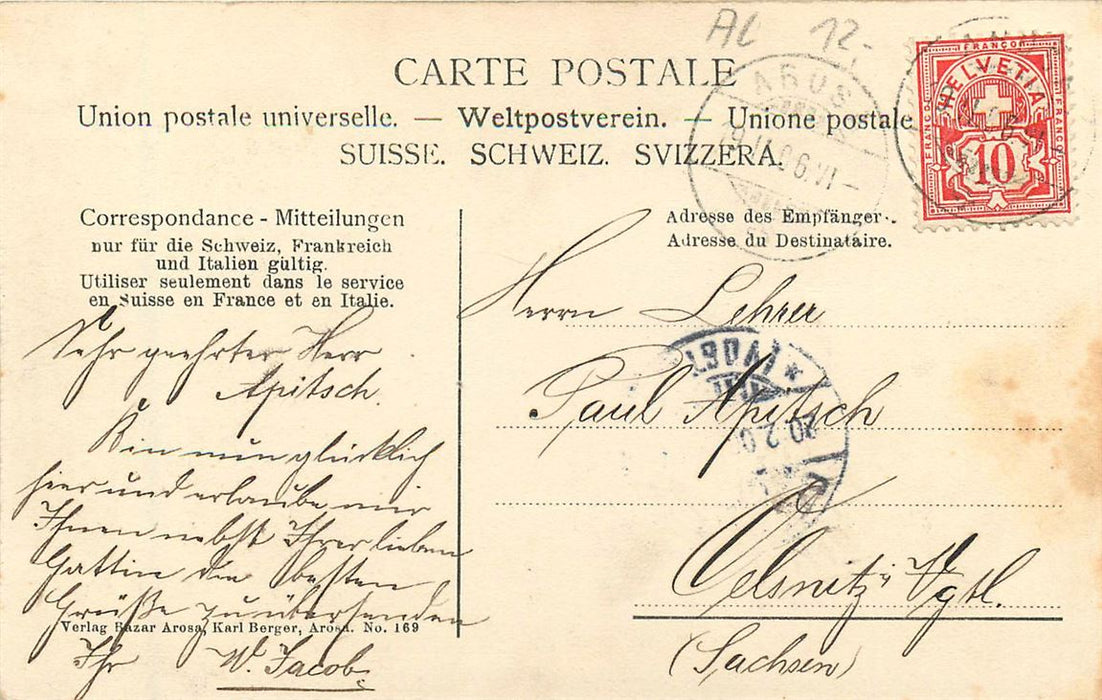 AL 12.-
CARTE POSTALE
Union postale universelle. — Weltpostverein. — Unione postale
SUISSE. SCHWEIZ. SVIZZERA.
FRANCO
HELVETIA
FRANCO
FRANCO
10
Correspondance - Mitteilungen
nur für die Schweiz, Frankreich
und Italien gültig.
Utiliser seulement dans le service
en Suisse en France et en Italie.
Adresse des Empfänger.
Adresse du Destinataire.
Sehr geehrter Herr
Apitsch.
Bin nun glücklich
hier und erlaube mir
Ihnen nebst Ihrer lieben
Gattin die besten
Grüße zu übersenden
Ihr W. Jacob
Verlag Bazar Arosa, Karl Berger, Arosa. No. 169
Herrn Lehrer
Paul Apitsch
Oelsnitz i Vgtl.
(Sachsen)
(VOGT
20.2.0